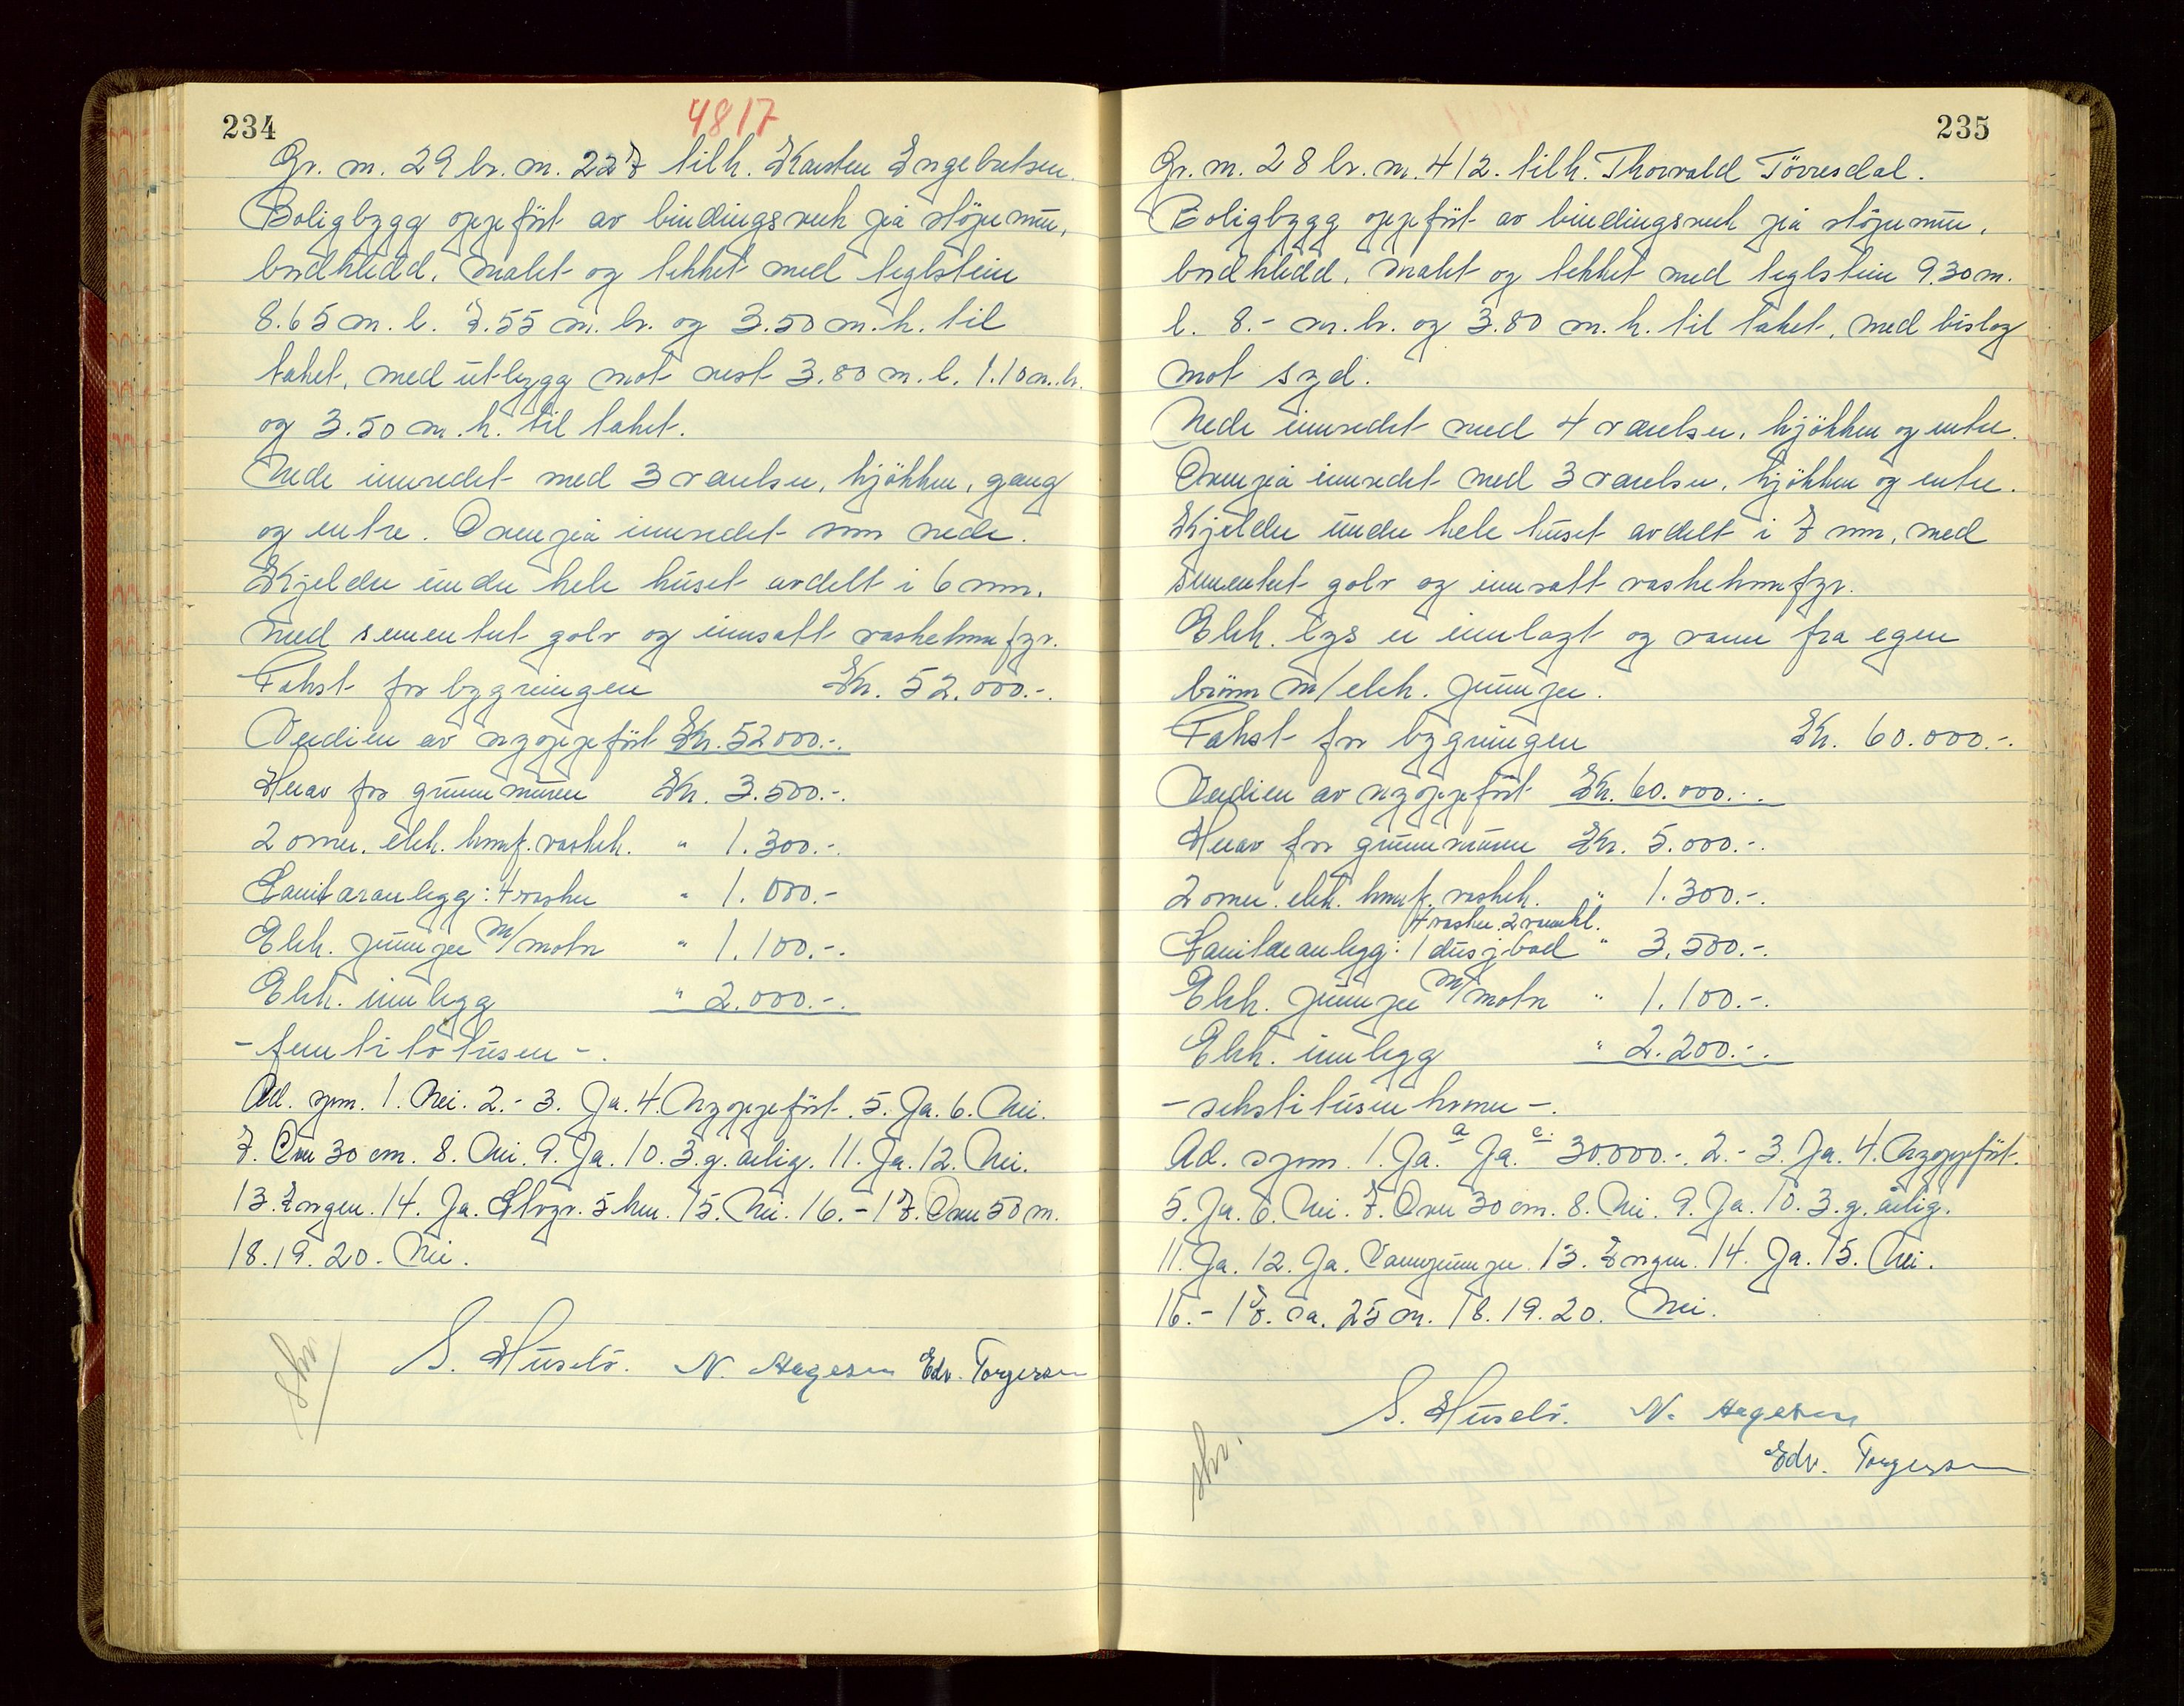 234
4817
Gr. n. 29 br. n. 227 tilh. Karsten Engebretsen.
Boligbygg oppfört av bindingsverk på stöpemur,
bordkledd, malet og tekket med teglstein
8.65 m. l. 7.55 m. br. og 3.50 m. h. til
taket, med utbygg mot vest 3.80 m. l. 1.10 m. br.
og 3.50 m. h. til taket.
Nede innredet med 3 værelser, kjökken, gang
og entre. Ovenpå innredet som nede.
Kjelder under hele huset avdelt i 6 rom,
med sementert golv og innsatt vaskekomfyr.
Takst for bygningen Kr. 52.000.-.
Verdien av nyoppfört Kr. 52000.-.
Herav for grunnmuren Kr. 3.500.-.
2 omn. elek. komf. vaskek. " 1.300.-.
Sanitæranlegg: 4 vasker " 1.000.-
Elek. pumpe m/motor " 1.100.-.
Elek. innlegg " 2.000.-.
- femtito tusen -.
Ad. spm. 1. Nei. 2.- 3. Ja. 4. Nyoppfört. 5. Ja. 6. Nei.
7. Over 30 cm. 8. Nei. 9. Ja. 10. 3. g. årlig. 11. Ja. 12. Nei.
13. Ingen. 14. Ja. Slvgr. 5 km. 15. Nei. 16.- 17. Over 50 m.
18. 19. 20. Nei.
S. Huselö. N. Aagesen Edv. Torgersen
skr.
235
Gr. n. 28 br. n. 412. tilh. Thorvald Törresdal.
Boligbygg oppfört av bindingsverk på stöpemur,
bordkledd, malet og tekket med teglstein 9.30 m.
l. 8.- m. br. og 3.80 m. h. til taket, med bislag
mot syd.
Nede innredet med 4 værelser, kjökken og entre.
Ovenpå innredet med 3 værelser, kjökken og entre.
Kjelder under hele huset avdelt i 7 rom, med
sementert golv og innsatt vaskekomfyr.
Elek. lys er innlagt og vann fra egen
brönn m/elek. pumpe.
Takst for bygningen Kr. 60.000.-.
Verdien av nyoppfört Kr. 60.000.-.
Herav for grunnmuren Kr. 5.000.-.
2 omn. elek. komf. vaskek. " 1.300.-.
4 vasker. 2 vannkl.
Sanitæranlegg: 1 dusjbad " 3.500.-.
Elek. pumpe m/motor " 1.100.-.
Elek. innlegg " 2.200.-.
- sekstitusen kroner -.
Ad. spm. 1. Ja. a Ja. c. 30.000.-. 2.- 3. Ja. 4. Nyoppfört.
5. Ja. 6. Nei. 7. Over 30 cm. 8. Nei. 9. Ja. 10. 3. g. årlig.
11. Ja. 12. Ja. Vannpumpe. 13. Ingen. 14. Ja. 15. Nei.
16.- 17. ca. 25 m. 18. 19. 20. Nei.
S. Huselö. N. Aagesen
Edv. Torgersen
skr.